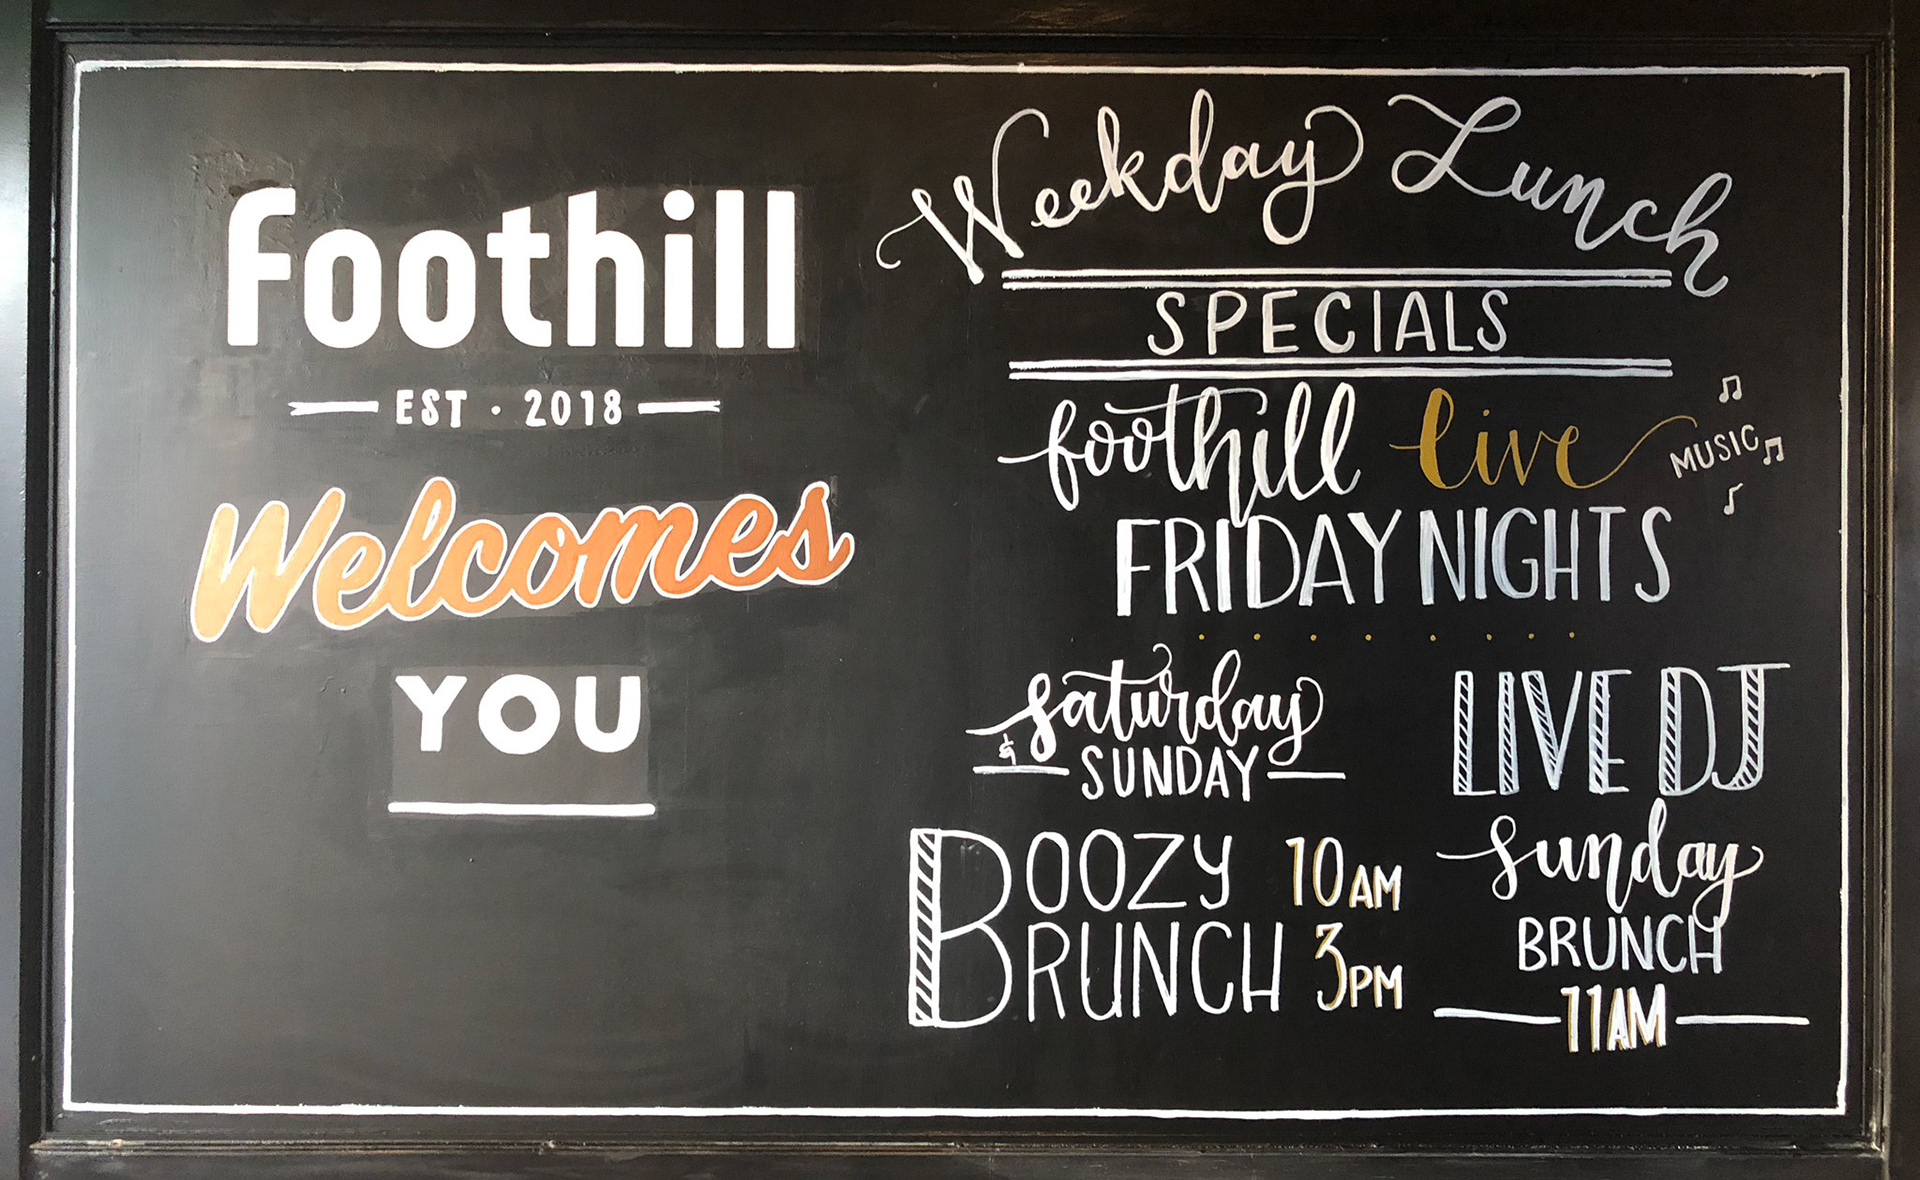 foothill
EST · 2018
Welcomes
YOU
Weekday Lunch
SPECIALS
foothill live MUSIC
FRIDAY NIGHTS
saturday
& SUNDAY
BOOZY 10AM
BRUNCH 3PM
LIVE DJ
sunday
BRUNCH
11AM